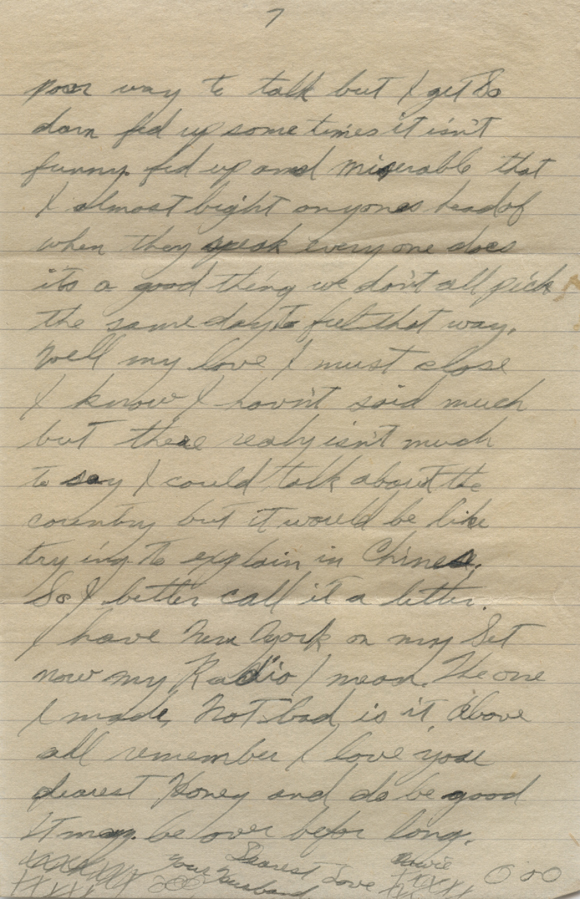 7
poor way to talk but I get So
darn fed up some times it isn't
funny. fed up and miserable that
I almost bight onyones head of
when they speak every one does
its a good thing we don't all pick
the same day to feel that way.
Well my love I must close
I know I havn't said much
but there realy isn't much
to say I could talk about the
country but it would be like
trying to explain in Chines.
So I better call it a letter.
I have New York on my Set
now my Radio I mean. The one
I made, Not bad is it above
all remember I love you
dearest Honey and do be good
It may be over befor long.
Dearest Love
Your Husband
XXXX
OOO